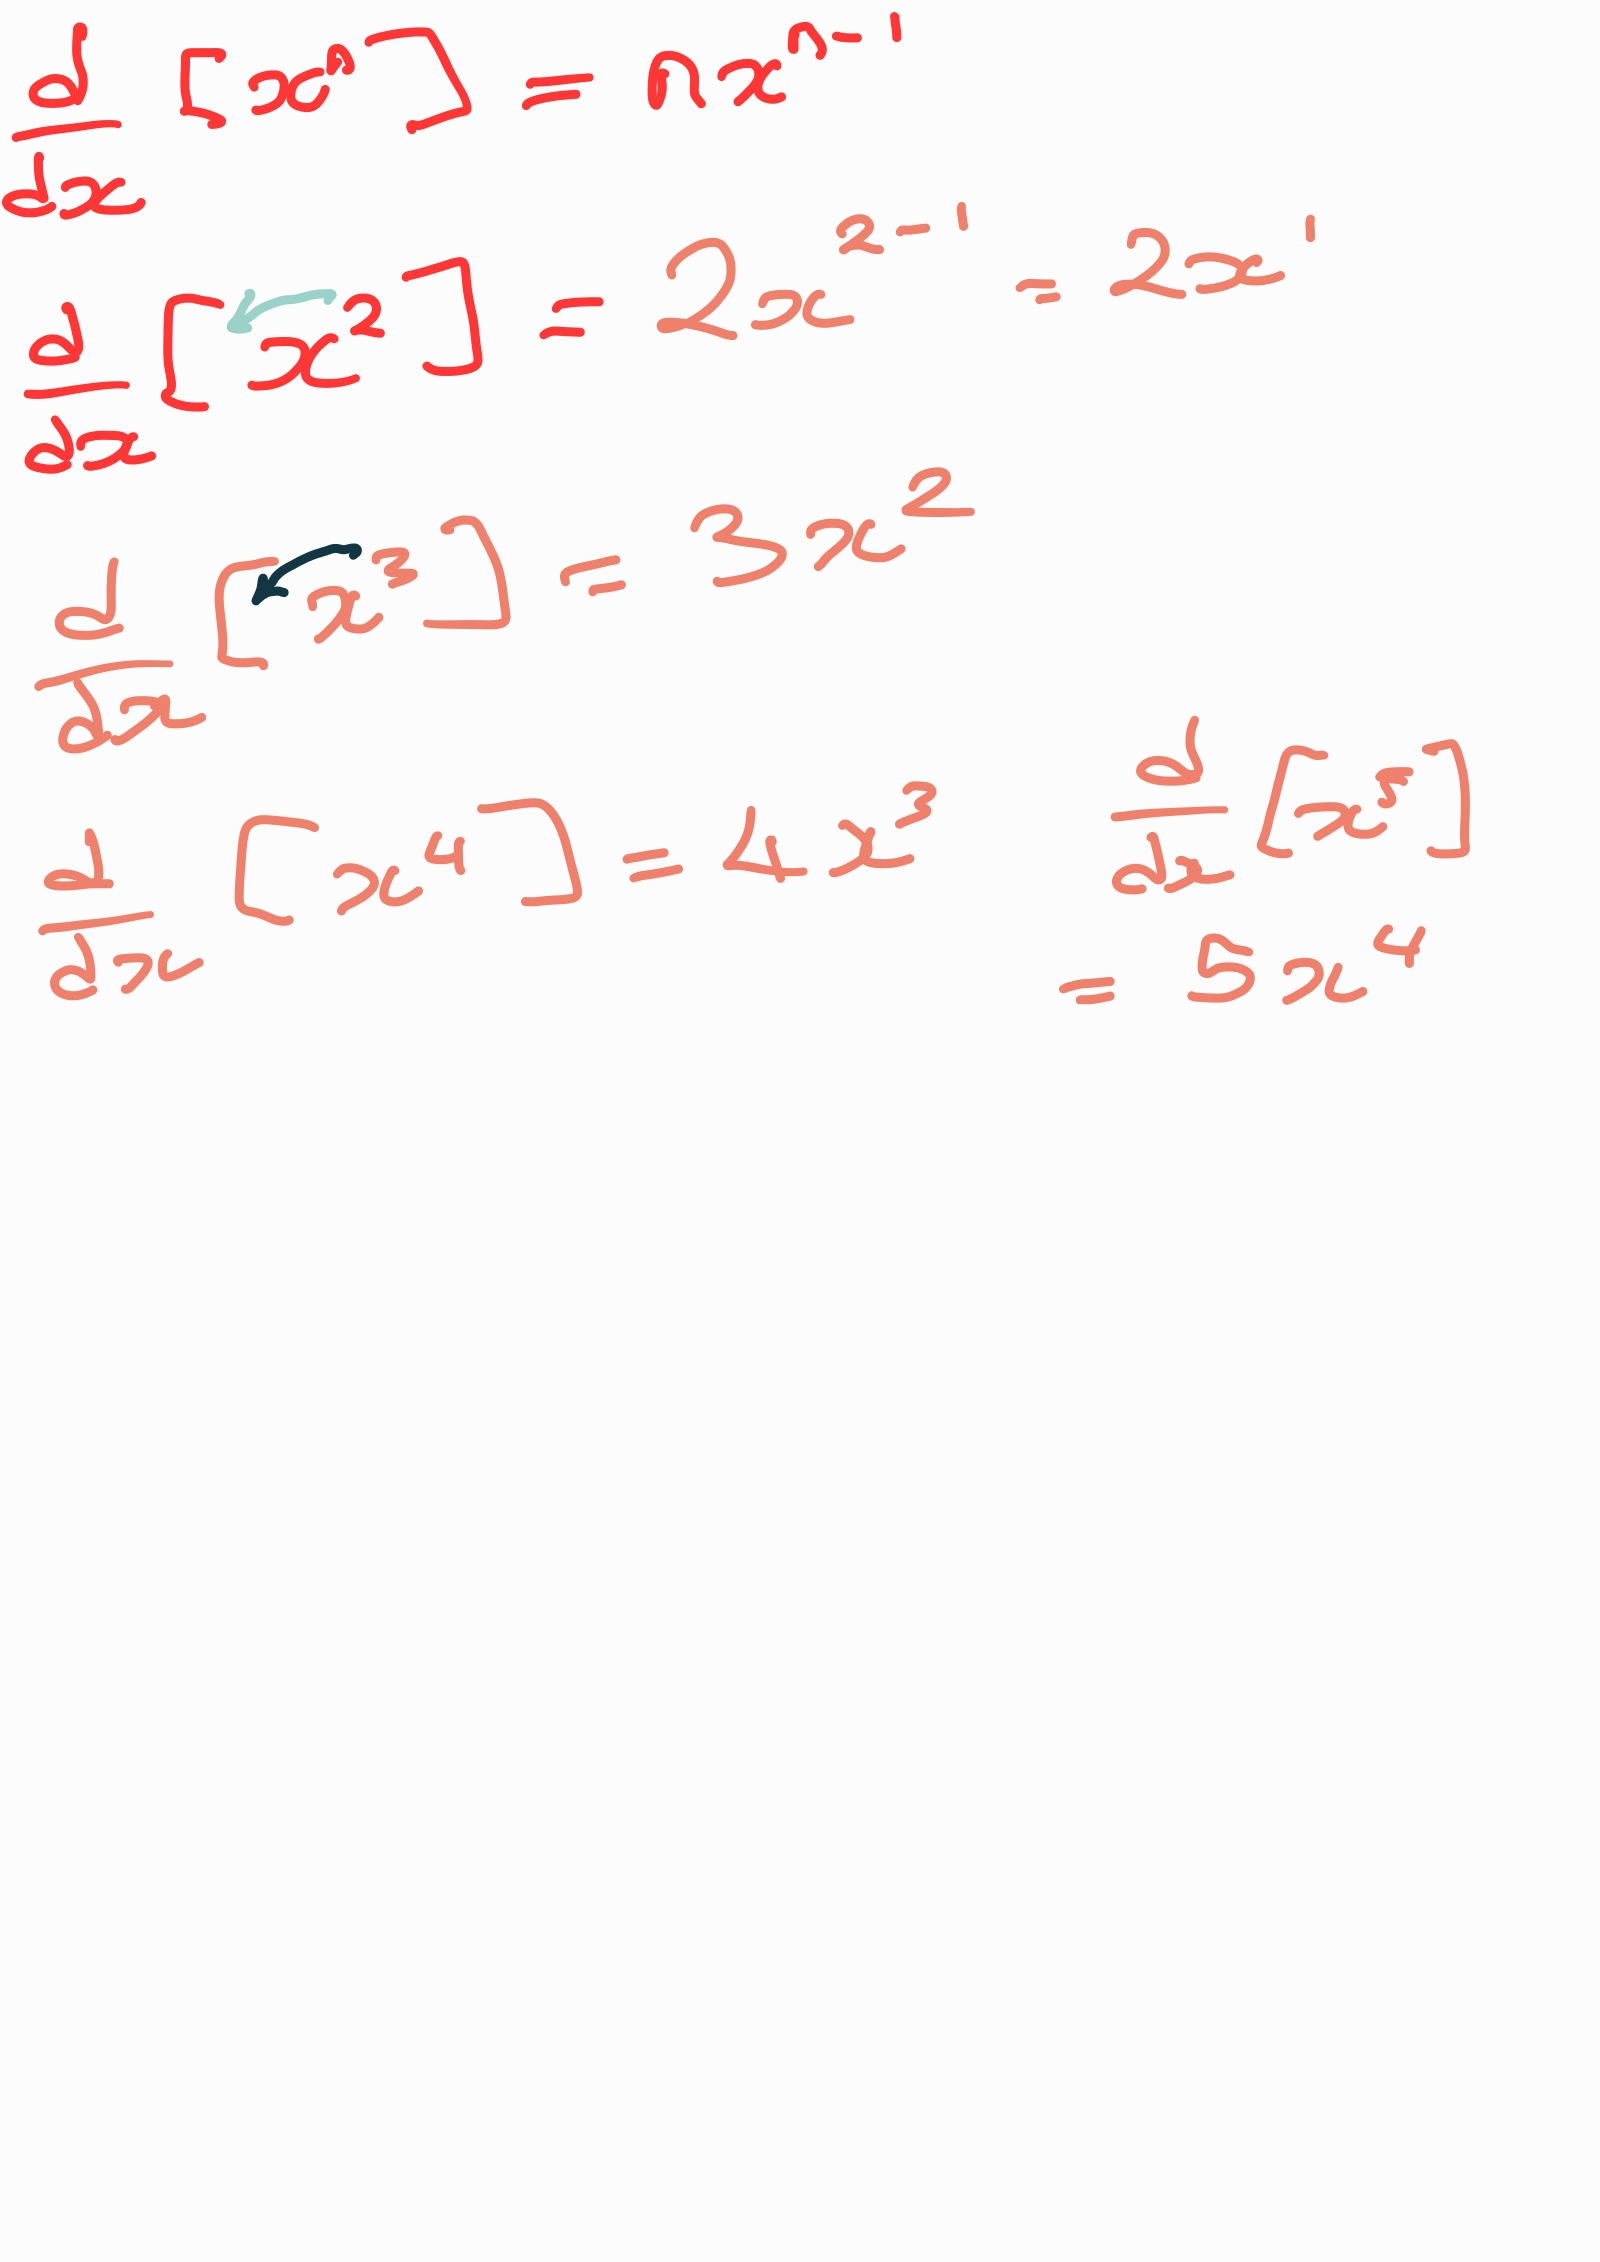 d/dx [xⁿ] = nxⁿ⁻¹
d/dx [x²] = 2x²⁻¹ = 2x¹
d/dx [x³] = 3x²
d/dx [x⁴] = 4x³
d/dx [x⁵]
= 5x⁴